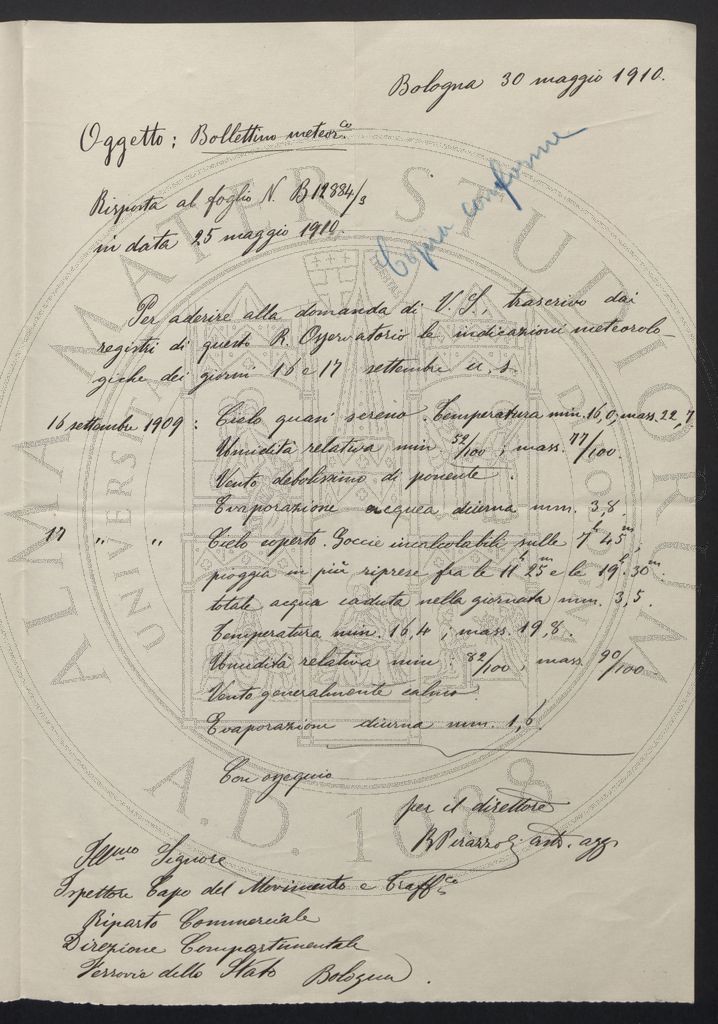 Bologna 30 maggio 1910.
Oggetto: Bollettino meteor.co
Copia conforme
Risposta al foglio N. B12884/3
in data 25 maggio 1910.
Per aderire alla domanda di V. S., trascrivo dai
registri di questo R. Osservatorio le indicazioni meteorolo-
giche dei giorni 16 e 17 settembre u. s.
16 settembre 1909: Cielo quasi sereno. Temperatura min. 16,0; mass. 22,7
Umidità relativa min. 52/100; mass. 77/100.
Vento debolissimo di ponente.
Evaporazione acquea diurna mm. 3,8.
17 " " Cielo coperto. Goccie incalcolabili sulle 7h 45m;
pioggia in più riprese fra le 11h 25m e le 19h 30m.
totale acqua caduta nella giornata mm. 3,5.
Temperatura min. 16,4; mass. 19,8.
Umidità relativa min. 82/100; mass. 90/100
Vento generalmente calmo.
Evaporazione diurna mm. 1,6.
Con ossequio
per il direttore
Illmo Signore
Ispettore Capo del Movimento e Traffco
Riparto Commerciale
Direzione Compartimentale
Ferrovie dello Stato Bologna.
ALMA MATER STUDIORUM
UNIVERSITÀ DI BOLOGNA
A.D. 1088